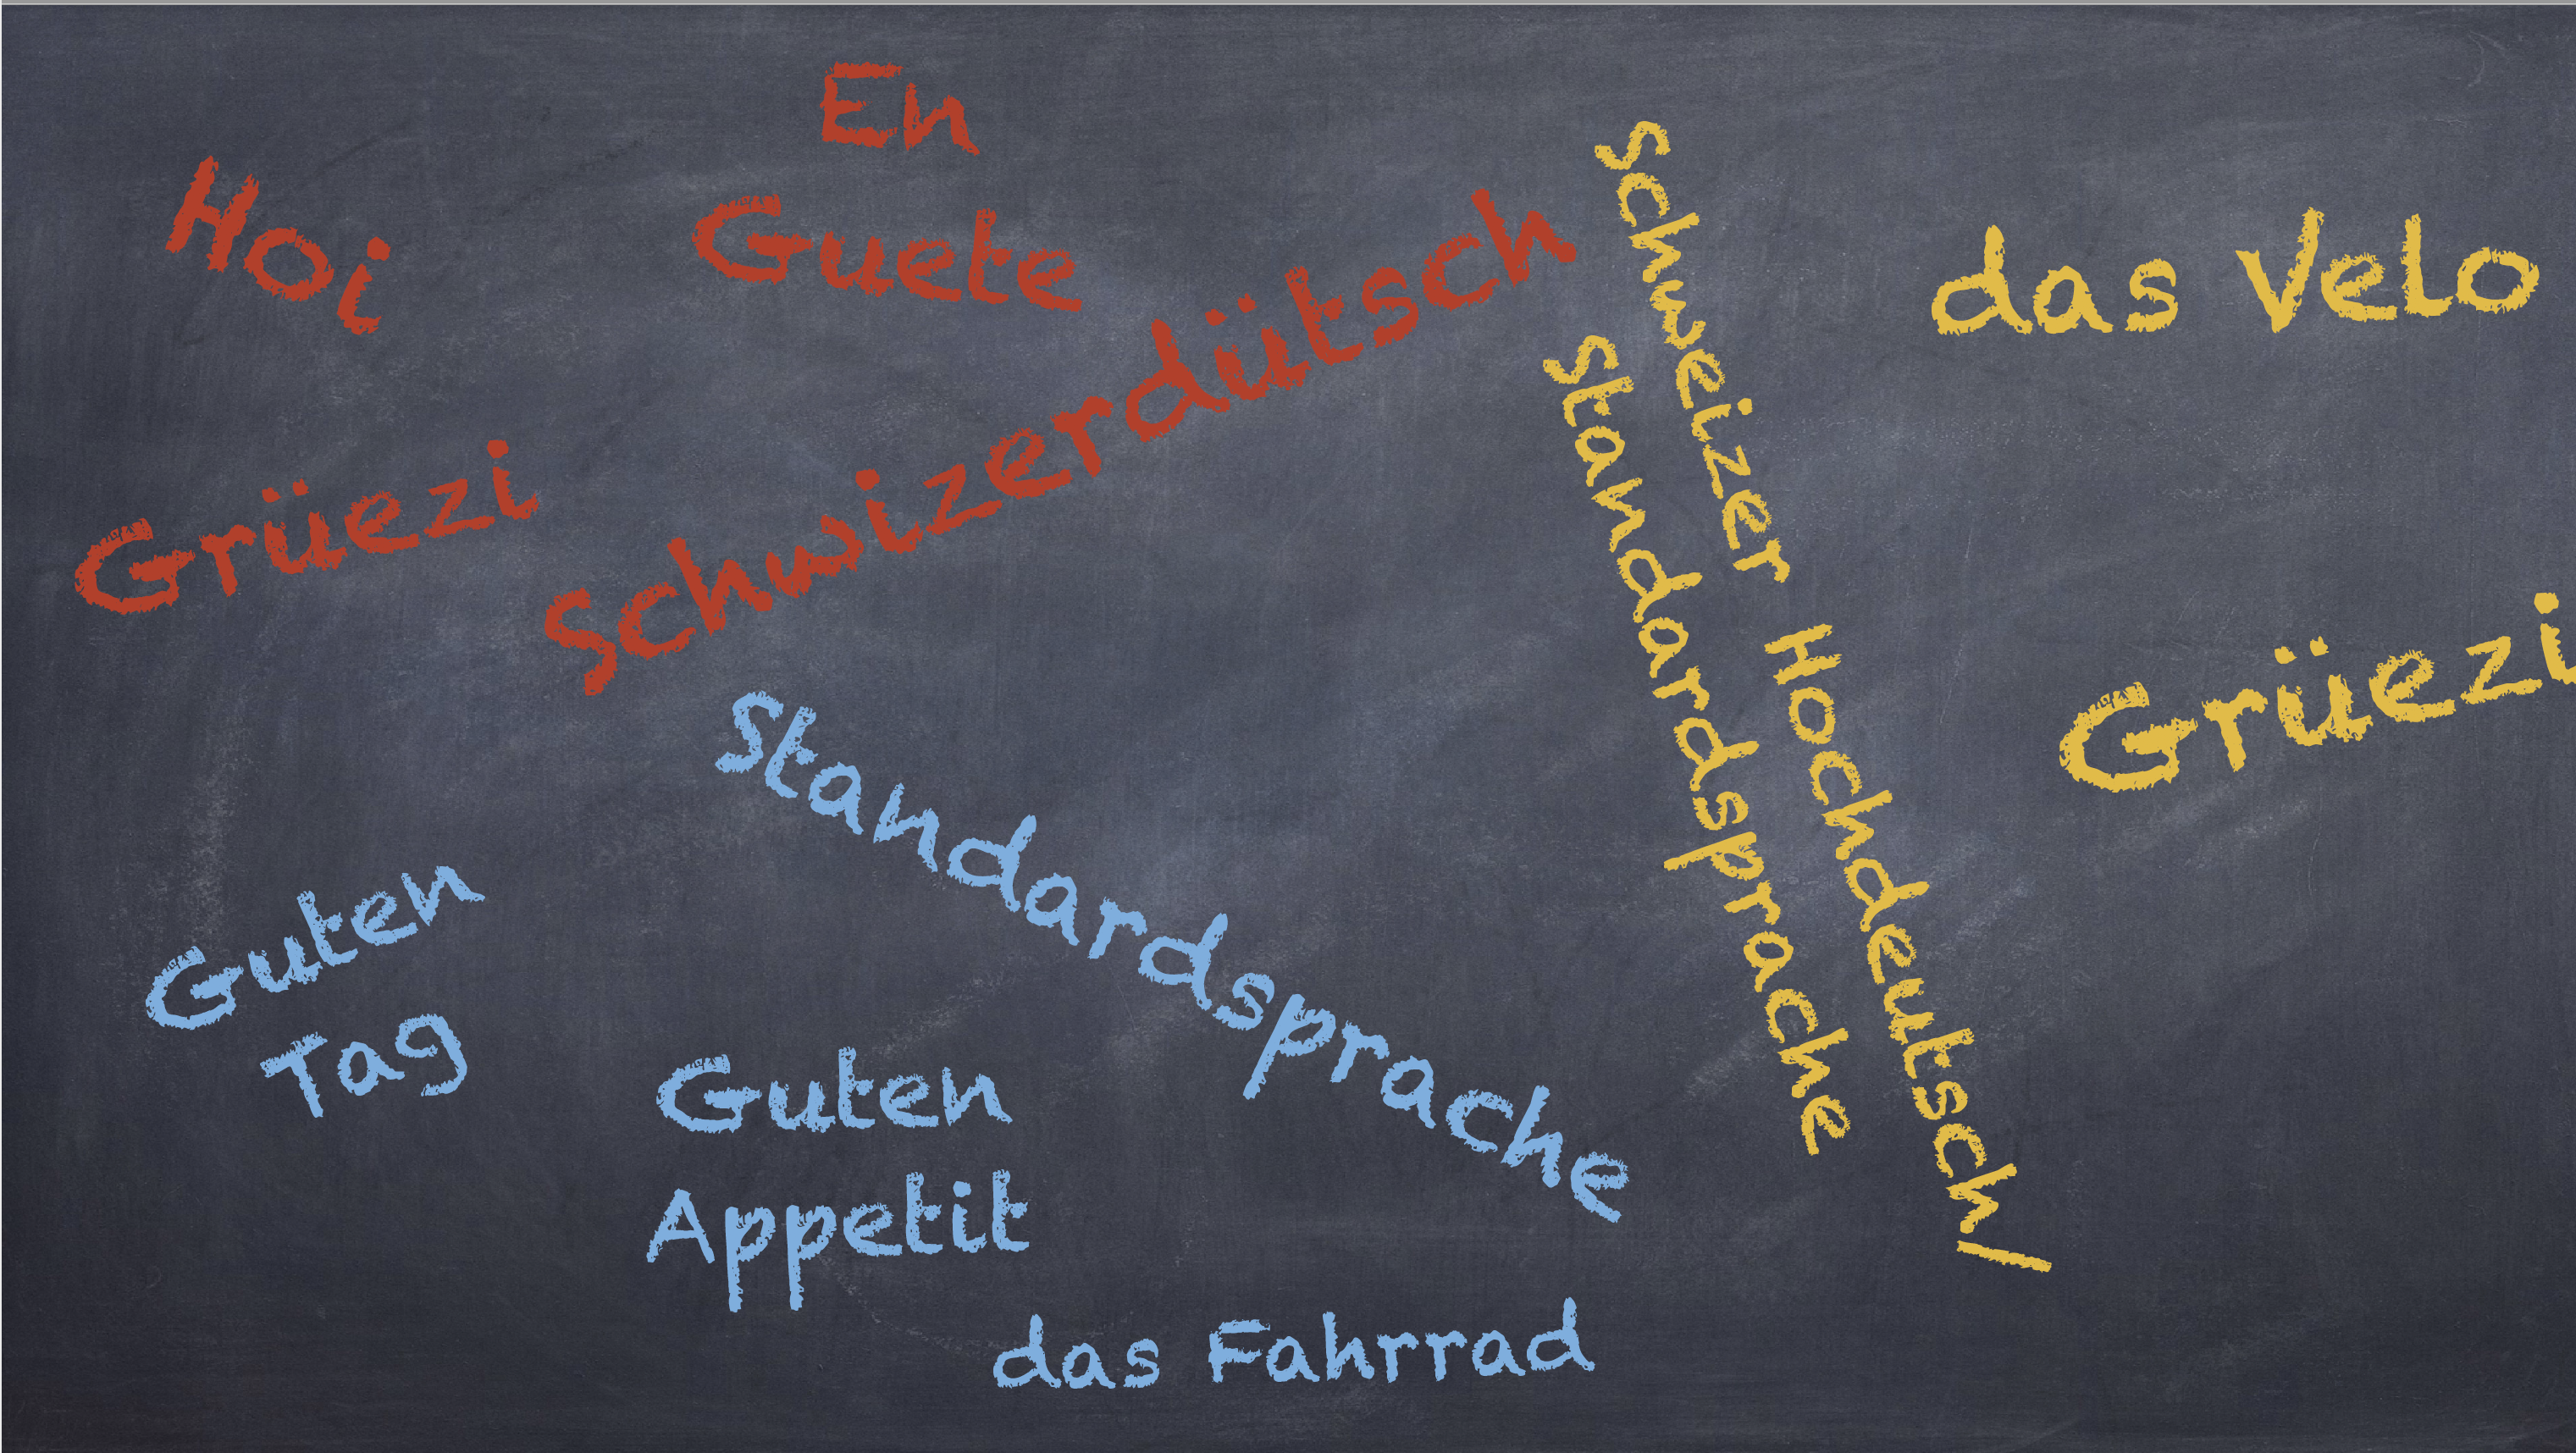 Hoi
En
Guete
Grüezi
Schwizerdütsch
Schweizer Hochdeutsch/
Standardsprache
das Velo
Grüezi
Standardsprache
Guten
Tag
Guten
Appetit
das Fahrrad